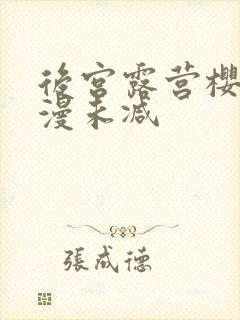 後宫露营樱
漫未减
張成德